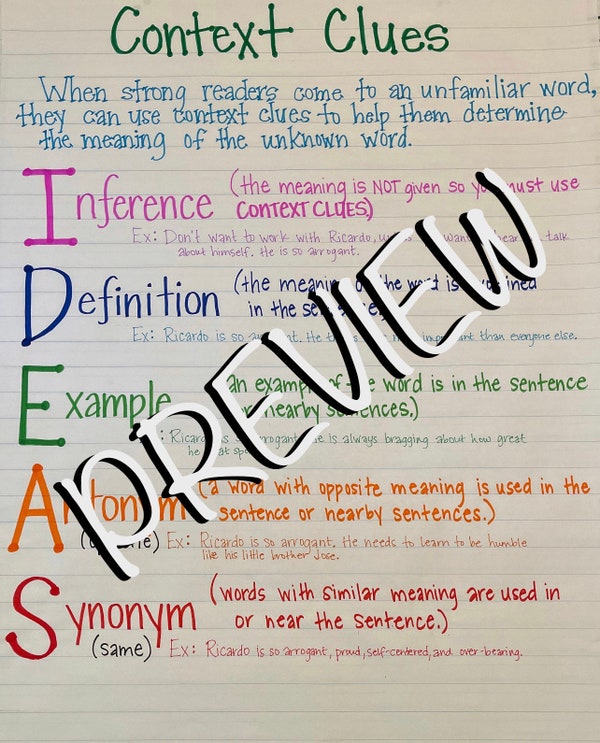 Context Clues
When strong readers come to an unfamiliar word,
they can use context clues to help them determine
the meaning of the unknown word.
Inference (the meaning is NOT given so you must use
CONTEXT CLUES)
Ex: Don't want to work with Ricardo, talk
about himself. He is so arrogant.
Definition (the meaning of the word is explained
in the sentence)
Ex: Ricardo is so arrogant. He important than everyone else.
Example an example of the word is in the sentence
or nearby sentences.)
Ricardo is so arrogant. He is always bragging about how great
he at
Antonym (a word with opposite meaning is used in the
sentence or nearby sentences.)
Ex: Ricardo is so arrogant. He needs to learn to be humble
like his little brother Jose.
Synonym (words with similar meaning are used in
or near the sentence.)
(same) Ex: Ricardo is so arrogant, proud, self-centered, and over-bearing.
PREVIEW